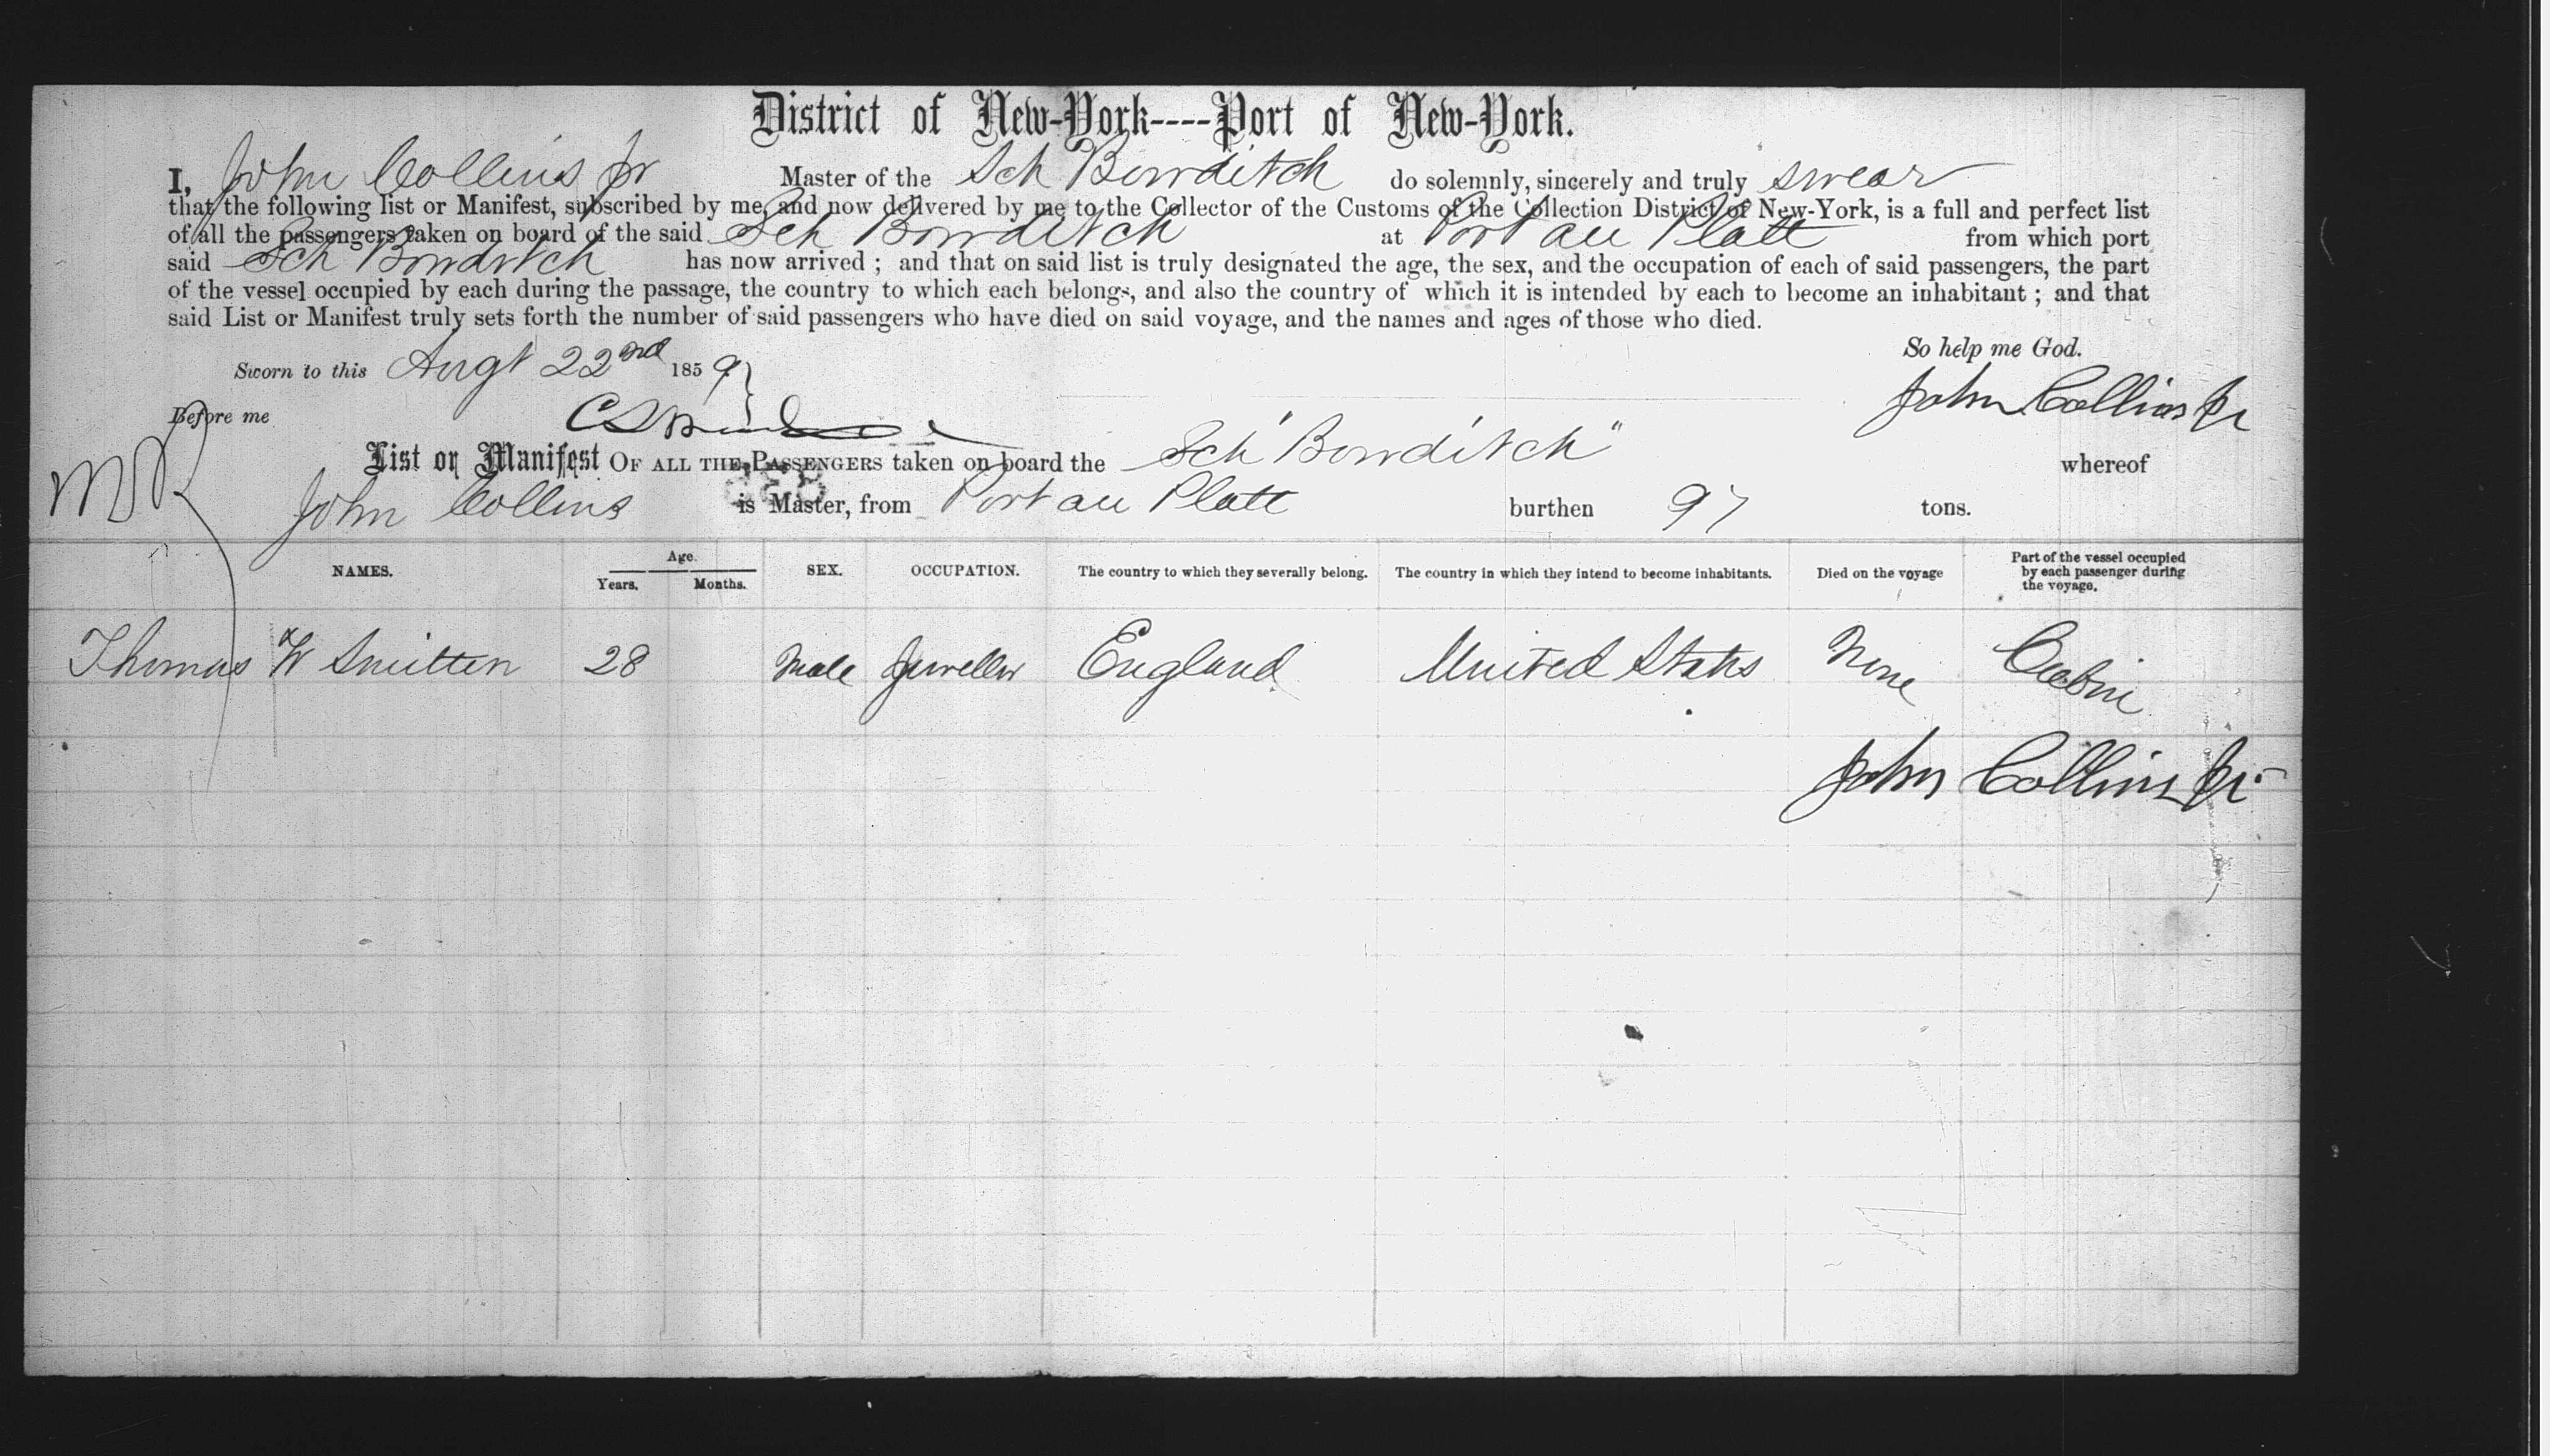 District of New-York----Port of New-York.
I, John Collins Jr Master of the Sch Bowditch do solemnly, sincerely and truly swear
that the following list or Manifest, subscribed by me, and now delivered by me to the Collector of the Customs of the Collection District of New-York, is a full and perfect list
of all the passengers taken on board of the said Sch Bowditch at Port au Platt from which port
said Sch Bowditch has now arrived ; and that on said list is truly designated the age, the sex, and the occupation of each of said passengers, the part
of the vessel occupied by each during the passage, the country to which each belongs, and also the country of which it is intended by each to become an inhabitant ; and that
said List or Manifest truly sets forth the number of said passengers who have died on said voyage, and the names and ages of those who died.
So help me God.
Sworn to this Augt 22nd 1859
John Collins Jr
Before me
List or Manifest OF ALL THE PASSENGERS taken on board the Sch "Bowditch" whereof
John Collins is Master, from Port au Platt burthen 97 tons.
NAMES. Age. Years. Months. SEX. OCCUPATION. The country to which they severally belong. The country in which they intend to become inhabitants. Died on the voyage Part of the vessel occupied by each passenger during the voyage.
Thomas W Smitten 28 Male Jeweller England United States None Cabin
John Collins Jr.